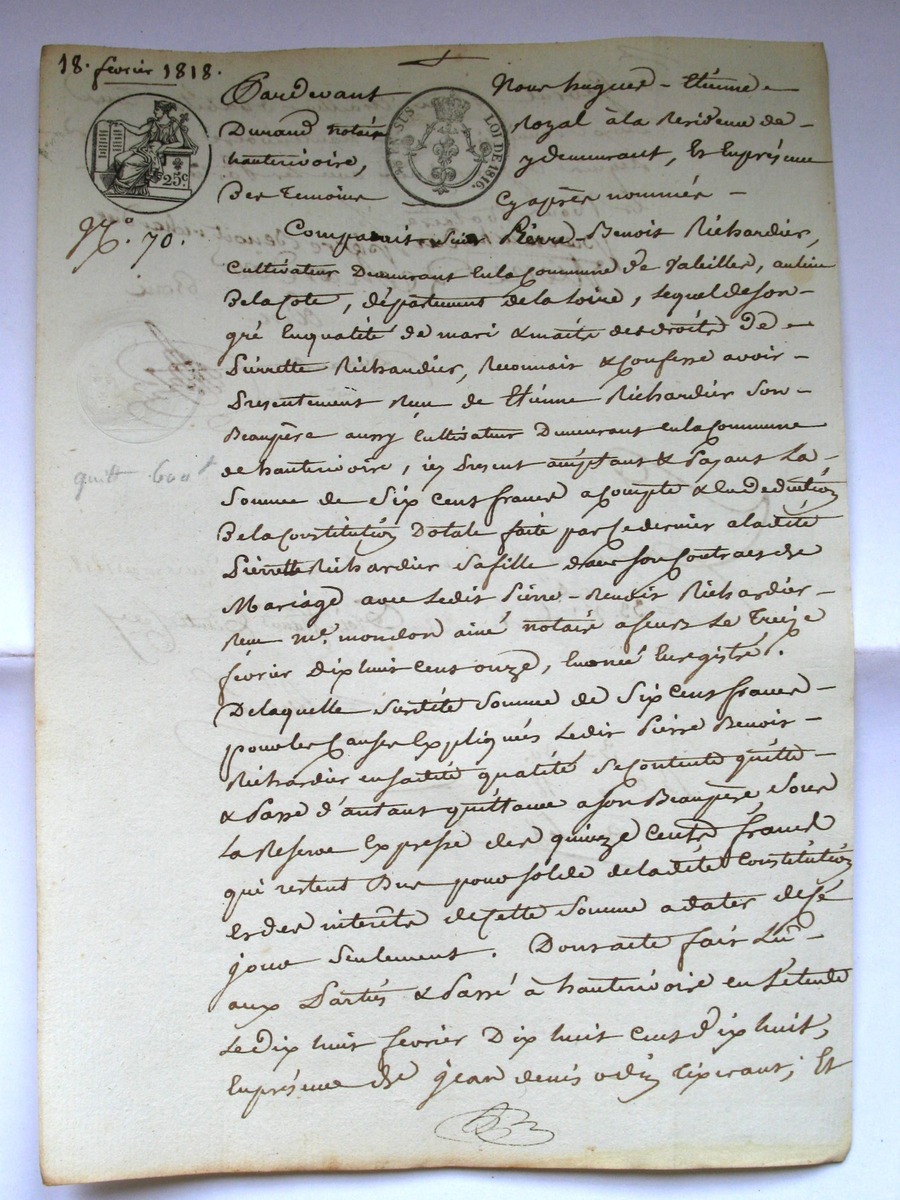 18. fevrier 1818.
Pardevant Nous hugues - Etienne -
Durand notaire Royal à la Residence de -
hauterivoire, y demeurant, et En présence
Des Temoins Cy après nommés -
25c.
EN SUS LOI DE 1816.
N.º 70.
Comparait sieur Pierre-Benoit Richardier,
Cultivateur Demeurant En la Commune de Valeilles, au lieu
De la Cote, département de la Loire, Lequel de son -
gré En qualité de mari & maitre des droits de -
Pierrette Richardier, Reconnait & Confesse avoir -
Presentement Reçu de Etienne Richardier Son -
Beaupère aussy Cultivateur Demeurant En la Commune
de hauterivoire, icy Present acceptant & Payant La -
Somme de Six Cens francs a Compte & En deduction
quitt 600f
De la Constitution Dotale faite par Ce dernier a la dite
Pierrette Richardier sa fille dans son Contract de
Mariage avec Ledit Pierre-Benoit Richardier -
Reçu me. mondon ainé notaire a feurs Le Treize
février Dix huit Cent onze, En oneé Enregistré.
De laquelle Susdite Somme de Six Cens francs -
pour les Causes Expliquées Ledit Pierre Benoit -
Richardier en sadite qualité Se Contente quitte -
& Passe d'autant quittance a son Beaupère, sous
La Reserve Expresse des quinze Cents francs
qui restent Dus pour solde de ladite Constitution
et des interets de Cette Somme a dater de Ce
jour Seulement. Dont acte fait Lu -
aux Parties & Passé à hauterivoire en L'etude
Le dix huit fevrier Dix huit Cens dix huit,
En présence de jean denis odin tixerant; Et